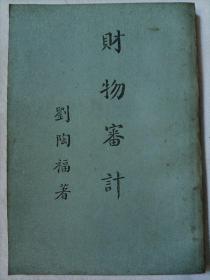 財物審計
劉陶福著